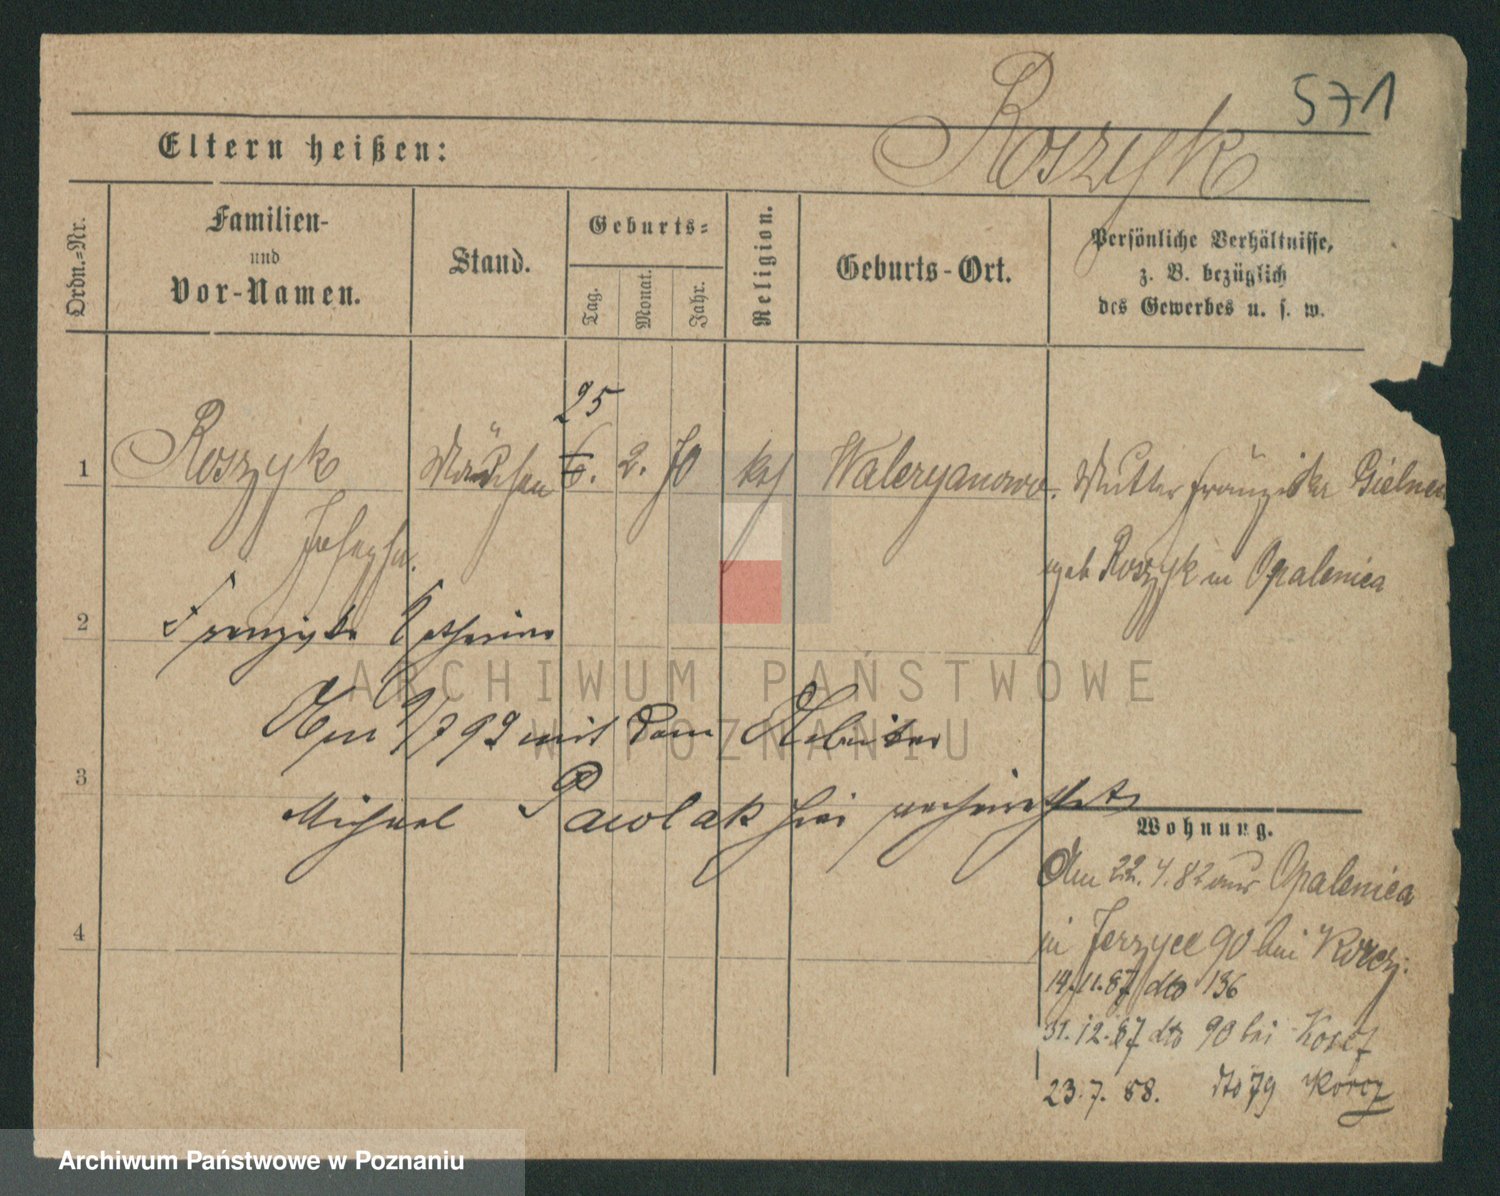 571
Eltern heißen: Roszyk
Ordn.-Nr.
Familien-
und
Vor-Namen.
Stand.
Geburts-
Tag.
Monat.
Jahr.
Religion.
Geburts-Ort.
Persönliche Verhältnisse,
z. B. bezüglich
des Gewerbes u. s. w.
25
1 Roszyk Mädchen 6. 2. 70 kat Waleryanowo. Mutter Franziska
Josepha. geb Roszyk in Opalenica
2 Franziska Catharina
Am 9/7 92 mit dem Arbeiter
3
Michael Pawolak hier verheirathet
Wohnung.
Am 22. 4. 82 aus Opalenica
4 in Jerzyce 90 bei
19.11.87 dto 136
31.12.87 dto 90 bei
23.7.88. dto 79 Korcz
ARCHIWUM PAŃSTWOWE
W POZNANIU
Archiwum Państwowe w Poznaniu